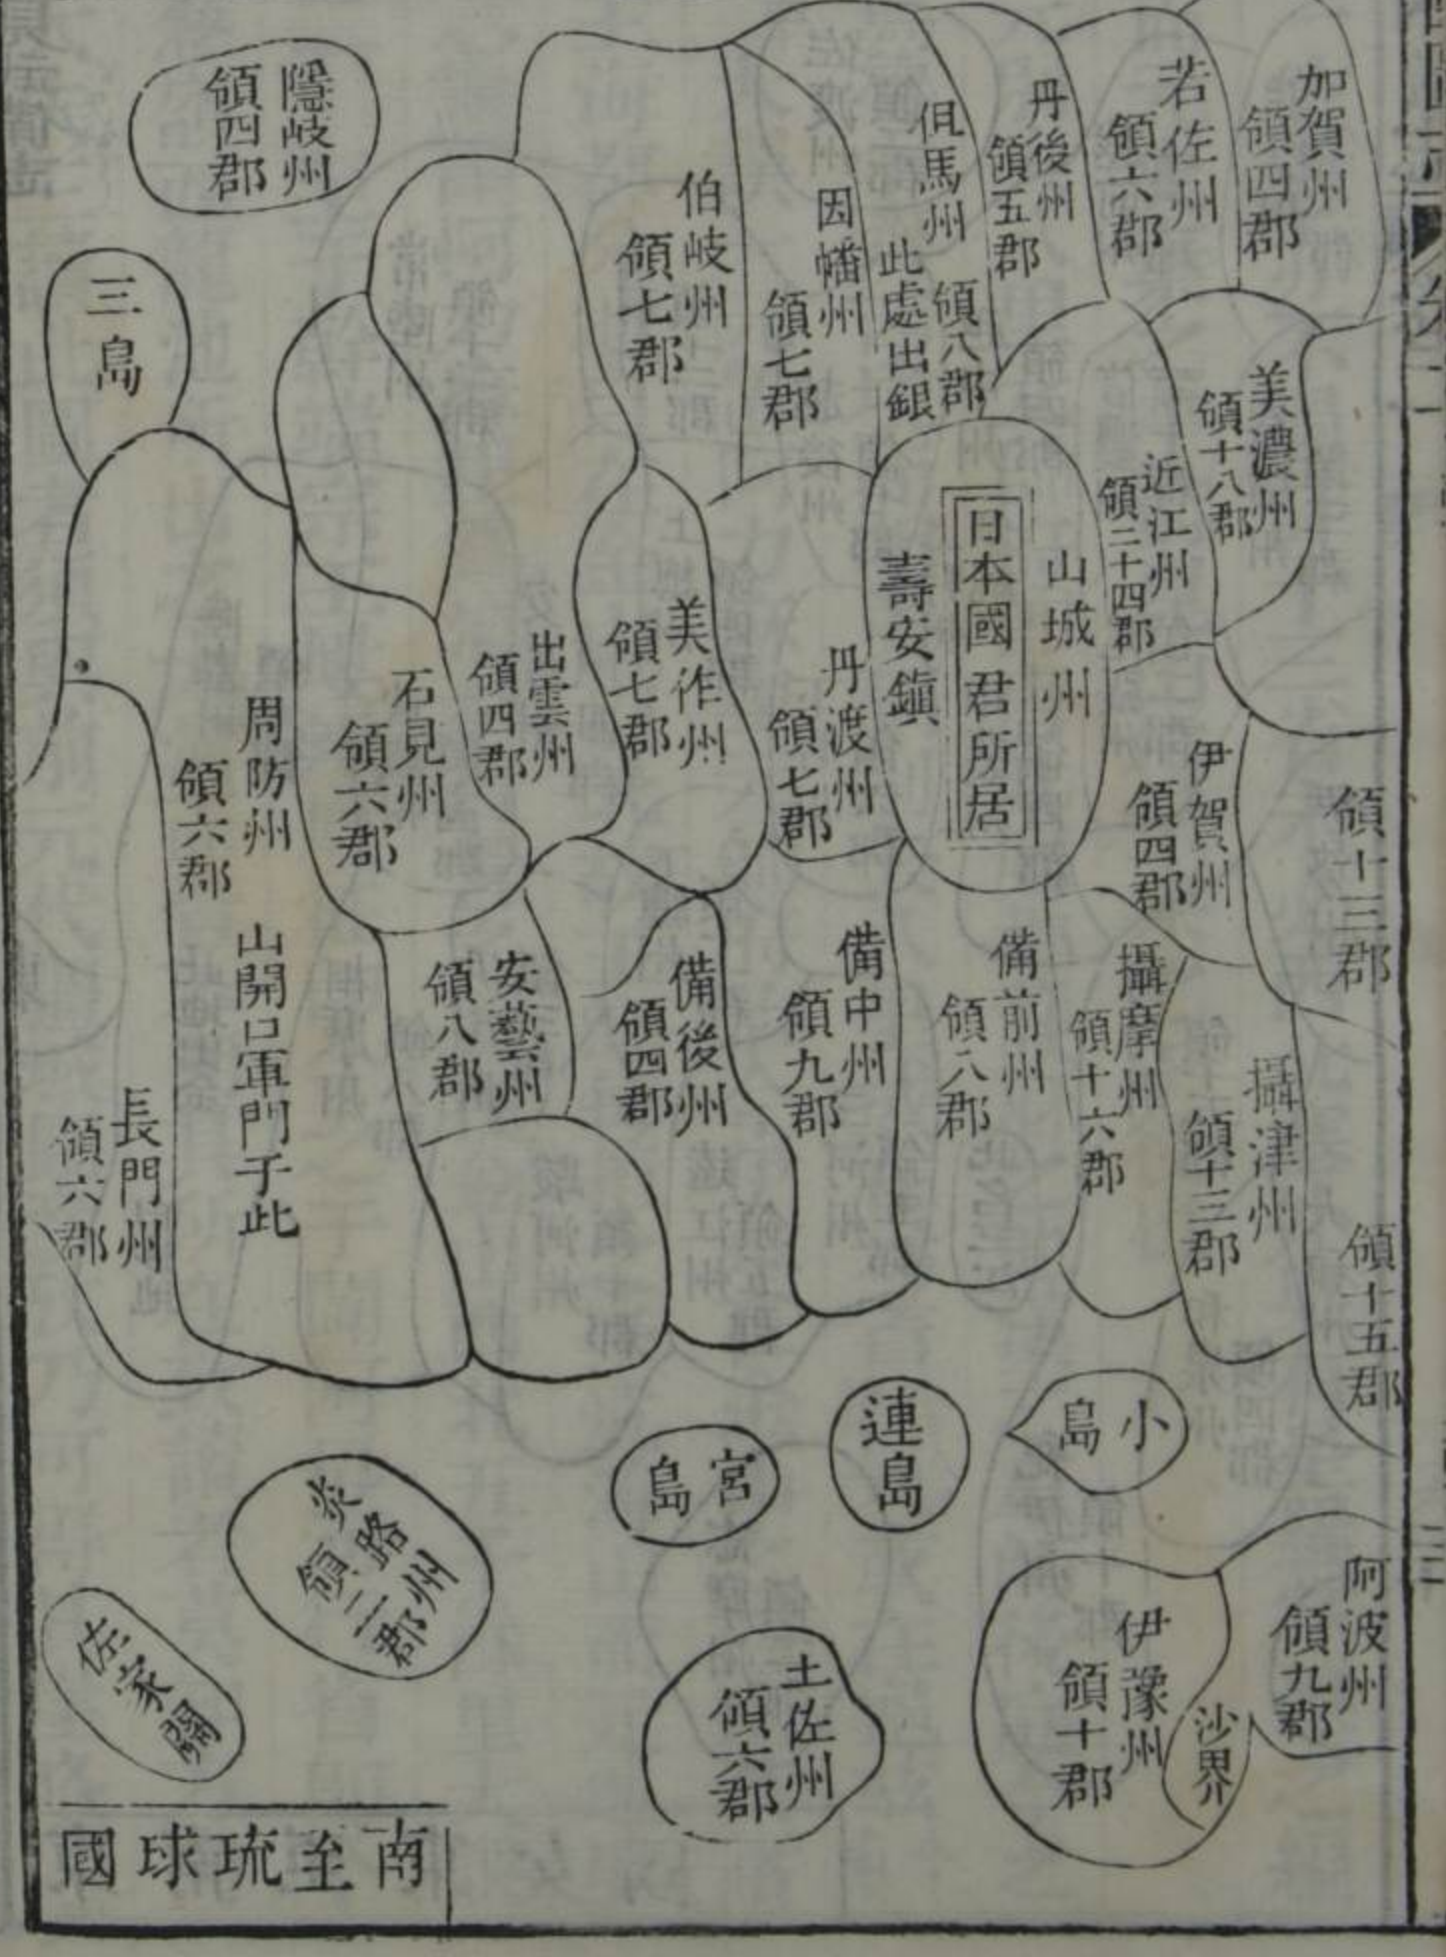 加賀州
領四郡
若佐州
領六郡
丹後州
領五郡
但馬州
領八郡
此處出銀
因幡州
領七郡
伯岐州
領七郡
隱岐州
領四郡
三島
美濃州
領十八郡
近江州
領二十四郡
山城州
日本國君所居
壽安鎮
丹渡州
領七郡
美作州
領七郡
出雲州
領四郡
石見州
領六郡
周防州
領六郡
山開口軍門于此
長門州
領六郡
領十三郡
伊賀州
領四郡
領十五郡
攝津州
領十三郡
攝摩州
領十六郡
備前州
領八郡
備中州
領九郡
備後州
領四郡
安藝州
領八郡
小島
連島
宮島
炎路州
領二郡
佐家彌
阿波州
領九郡
沙界
伊豫州
領十郡
土佐州
領六郡
南至琉球國